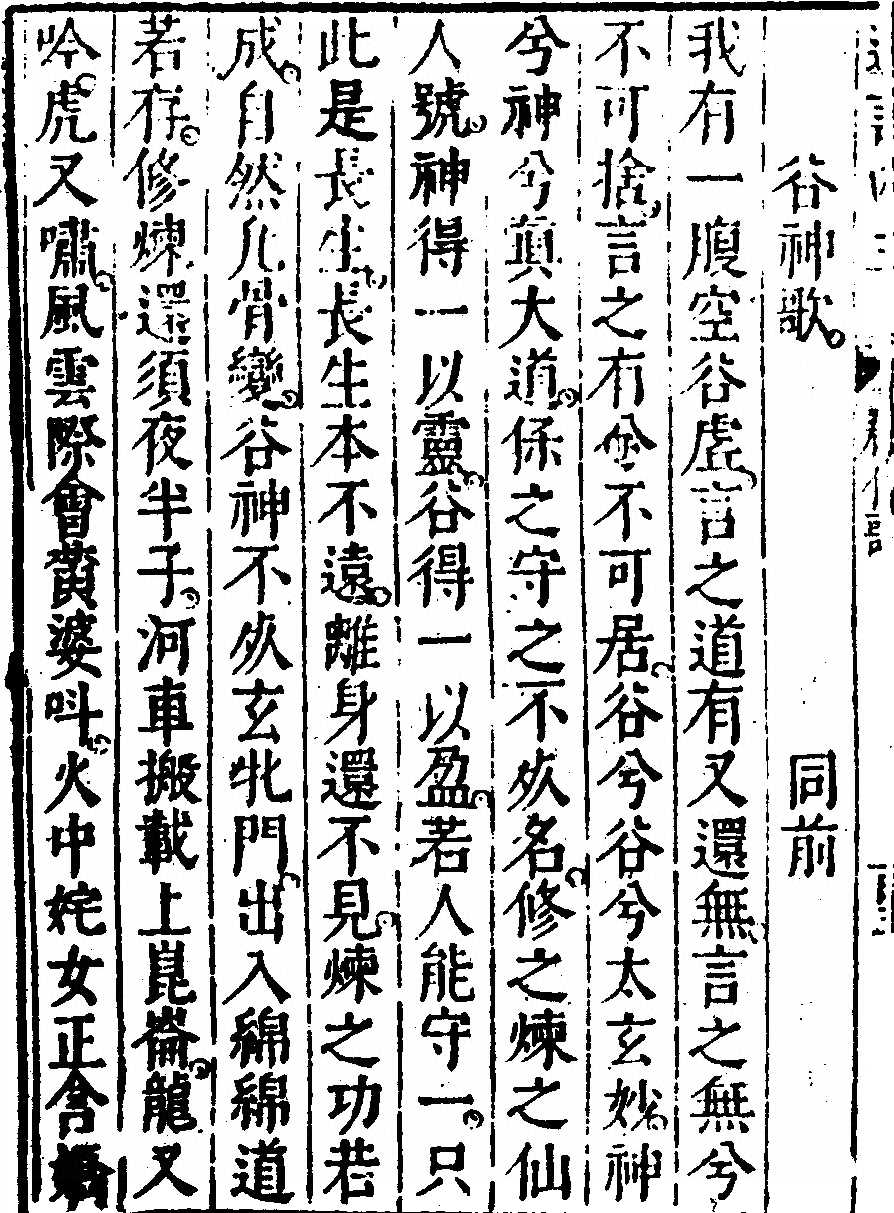 谷神歌。 同前
我有一腹空谷虛。言之道有又還無。言之無兮
不可捨。言之有兮不可居。谷兮谷兮太玄妙。神
兮神兮真大道。保之守之不死名。修之煉之仙
人號。神得一以靈。谷得一以盈。若人能守一。只
此是長生。長生本不遠。離身還不見。煉之功若
成。自然凡骨變。谷神不死玄牝門。出入綿綿道
若存。修煉還須夜半子。河車搬載上崑崙。龍又
吟。虎又嘯。風雲際會黃婆叫。火中姹女正含